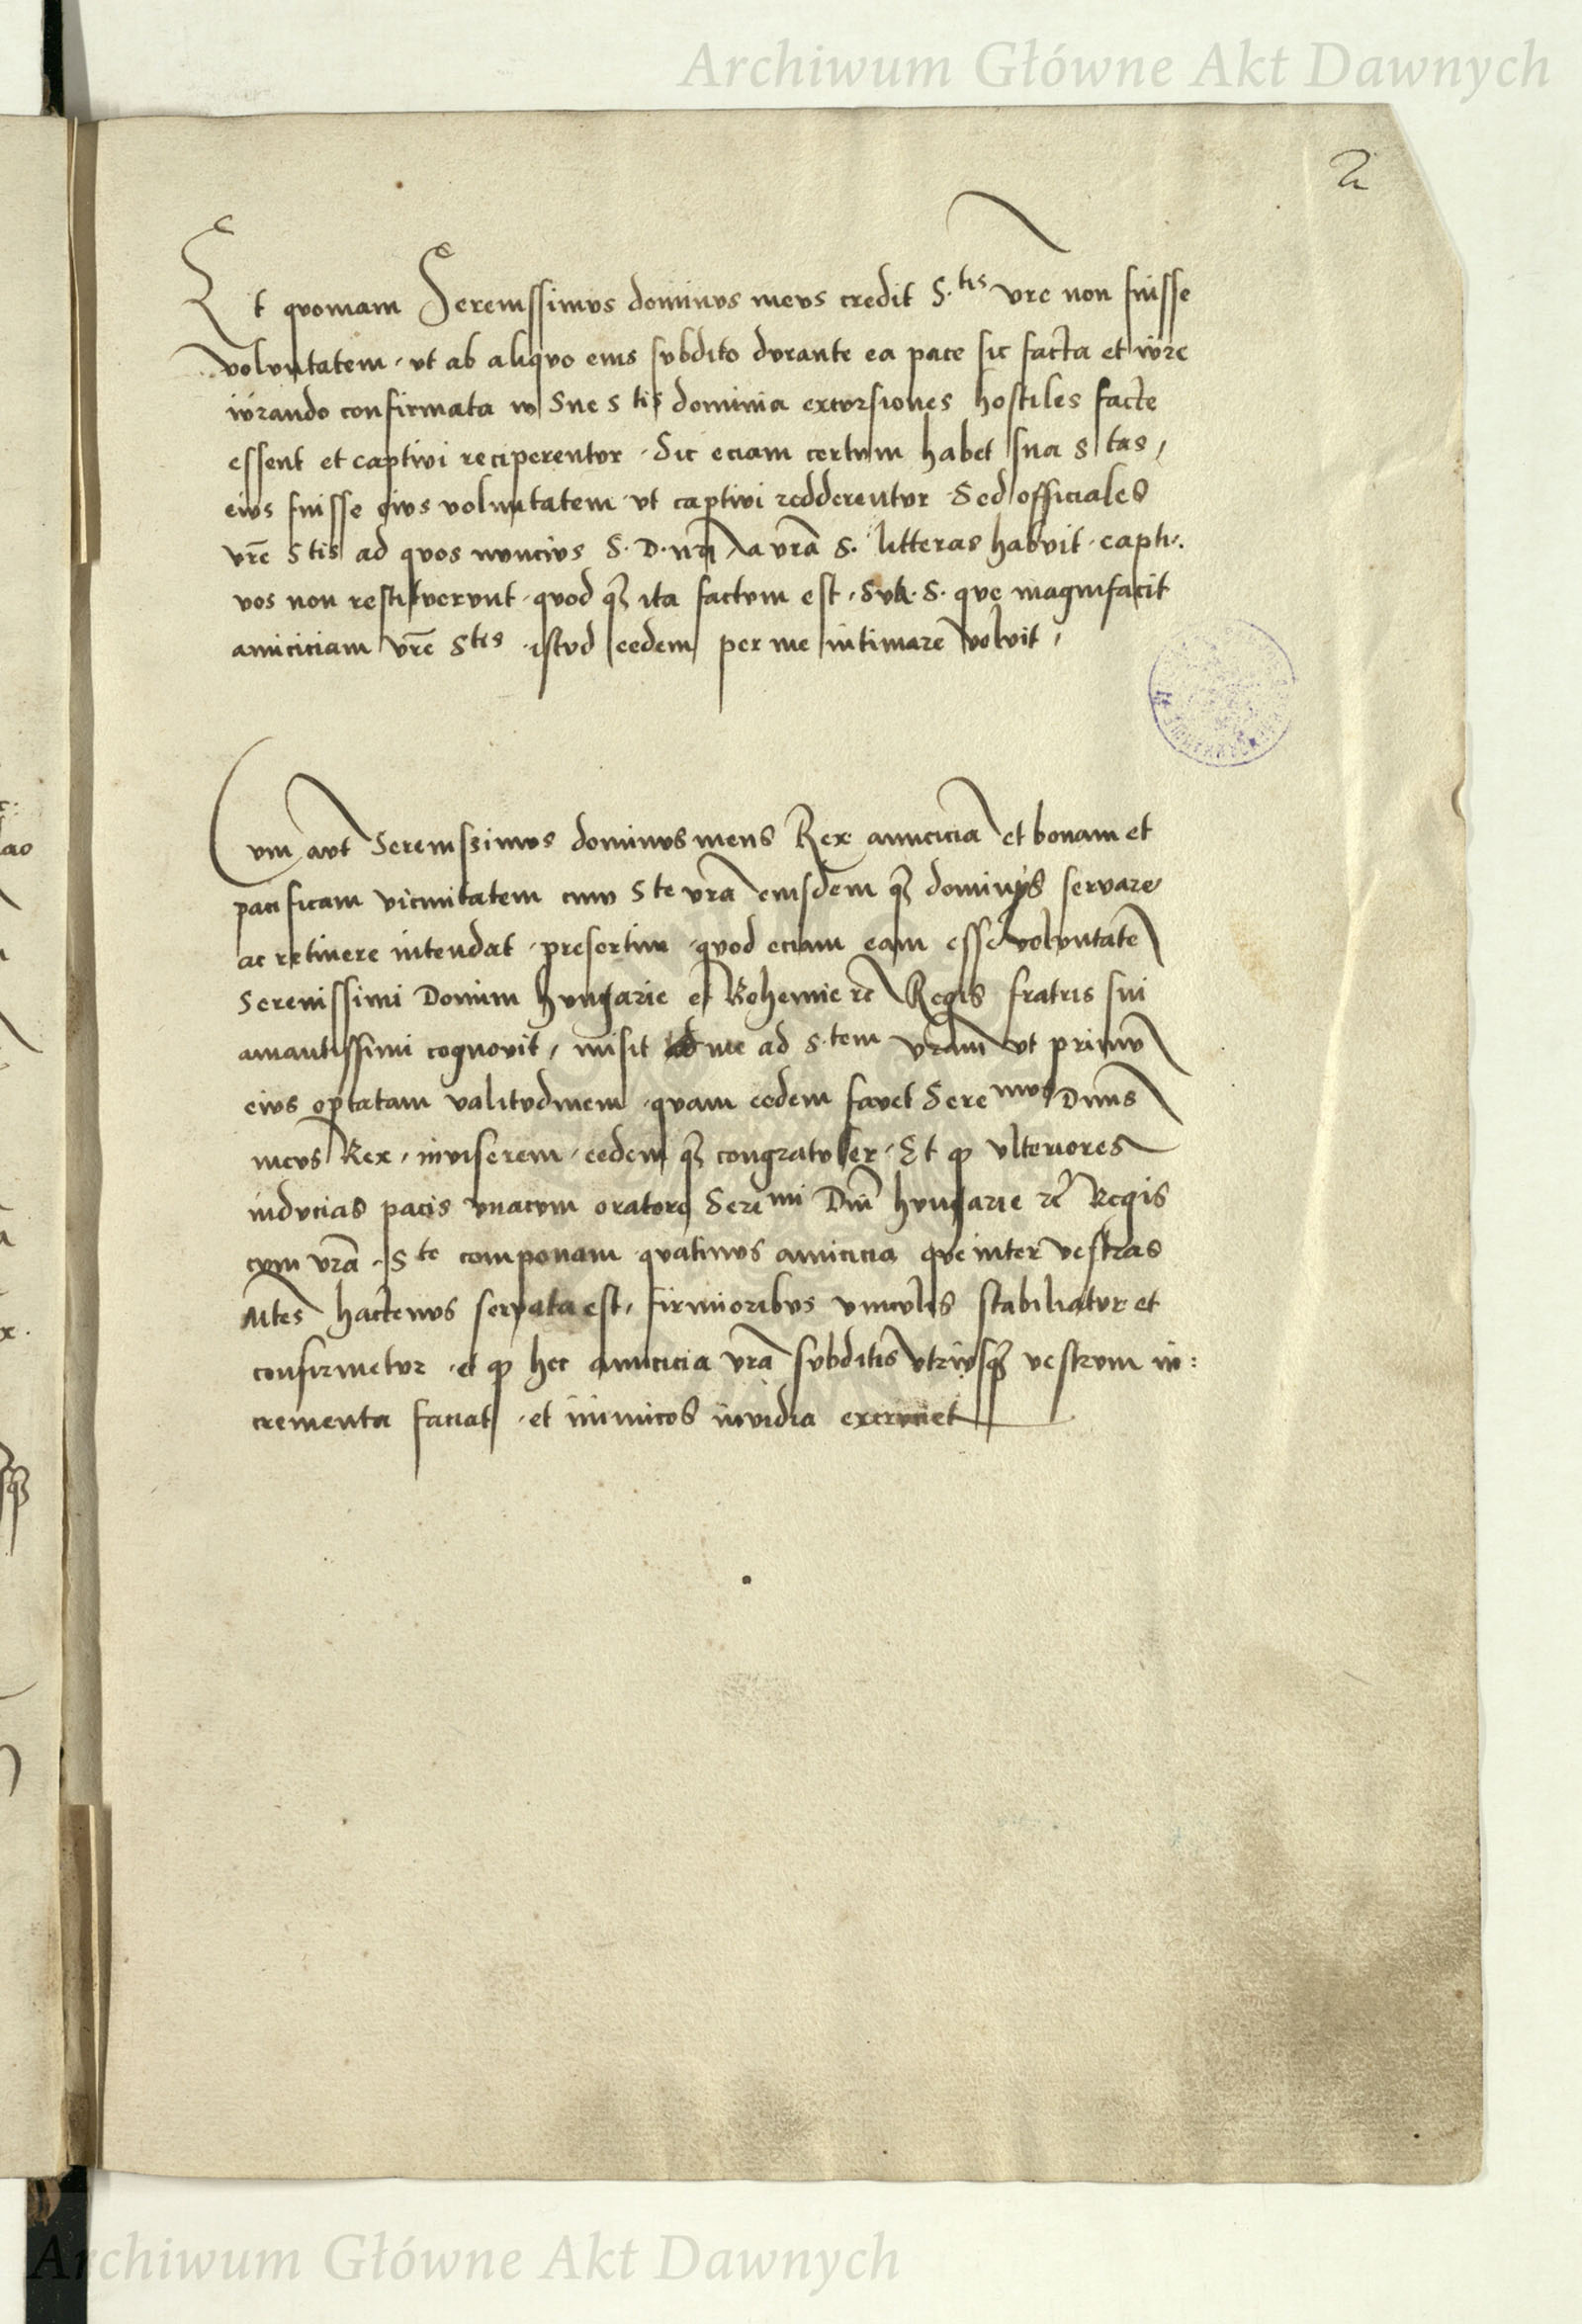 Archiwum Główne Akt Dawnych
2
Et quoniam Serenissimus dominus meus credit S.tis vre non fuisse
voluntatem · ut ab aliquo eius subdito durante ea pace sic facta et iure
iurando confirmata in Sue Stis dominia excursiones hostiles facte
essent et captivi reciperentur · Sic eciam certum habet sua Stas,
eius fuisse eius voluntatem · ut captivi redderentur · Sed officiales
vrē Stis ad quos nuncius S. D. a vrā S. litteras habuit · capti:
vos non restituerunt · quod qȝ ita factum est, S. que magnifacit
amiciciam vrē Stis · istud eedem per me intimare voluit,
Cum aut Serenissimus dominus meus Rex amicicia et bonam et
pacificam vicinitatem cum Ste vrā eiusdem qȝ dominijs servare
ac retinere intendat · presertim · quod eciam eam esse voluntatē
Serenissimi Domini hungarie et Bohemie rc̄ Regis fratris sui
amantissimi cognovit, misit me ad S.tem vram ut primū
eius optatam valitudinem · quam eedem favet Serenmus Dnus
meus Rex, inviserem · eedem qȝ congratuler · Et ꝙ ulteriores
inducias pacis unacum oratore Serenmi Dni hungarie rc̄ Regis
cum vrā · Ste componam quatinus amicicia que inter vestras
Mtes hactenus servata est, firmioribus vinculis stabiliatur et
confirmetur · et ꝙ hec amicicia vrā subditis utriusqȝ vestrum in:
crementa faciat · et inimicos invidia excruciet
Archiwum Główne Akt Dawnych